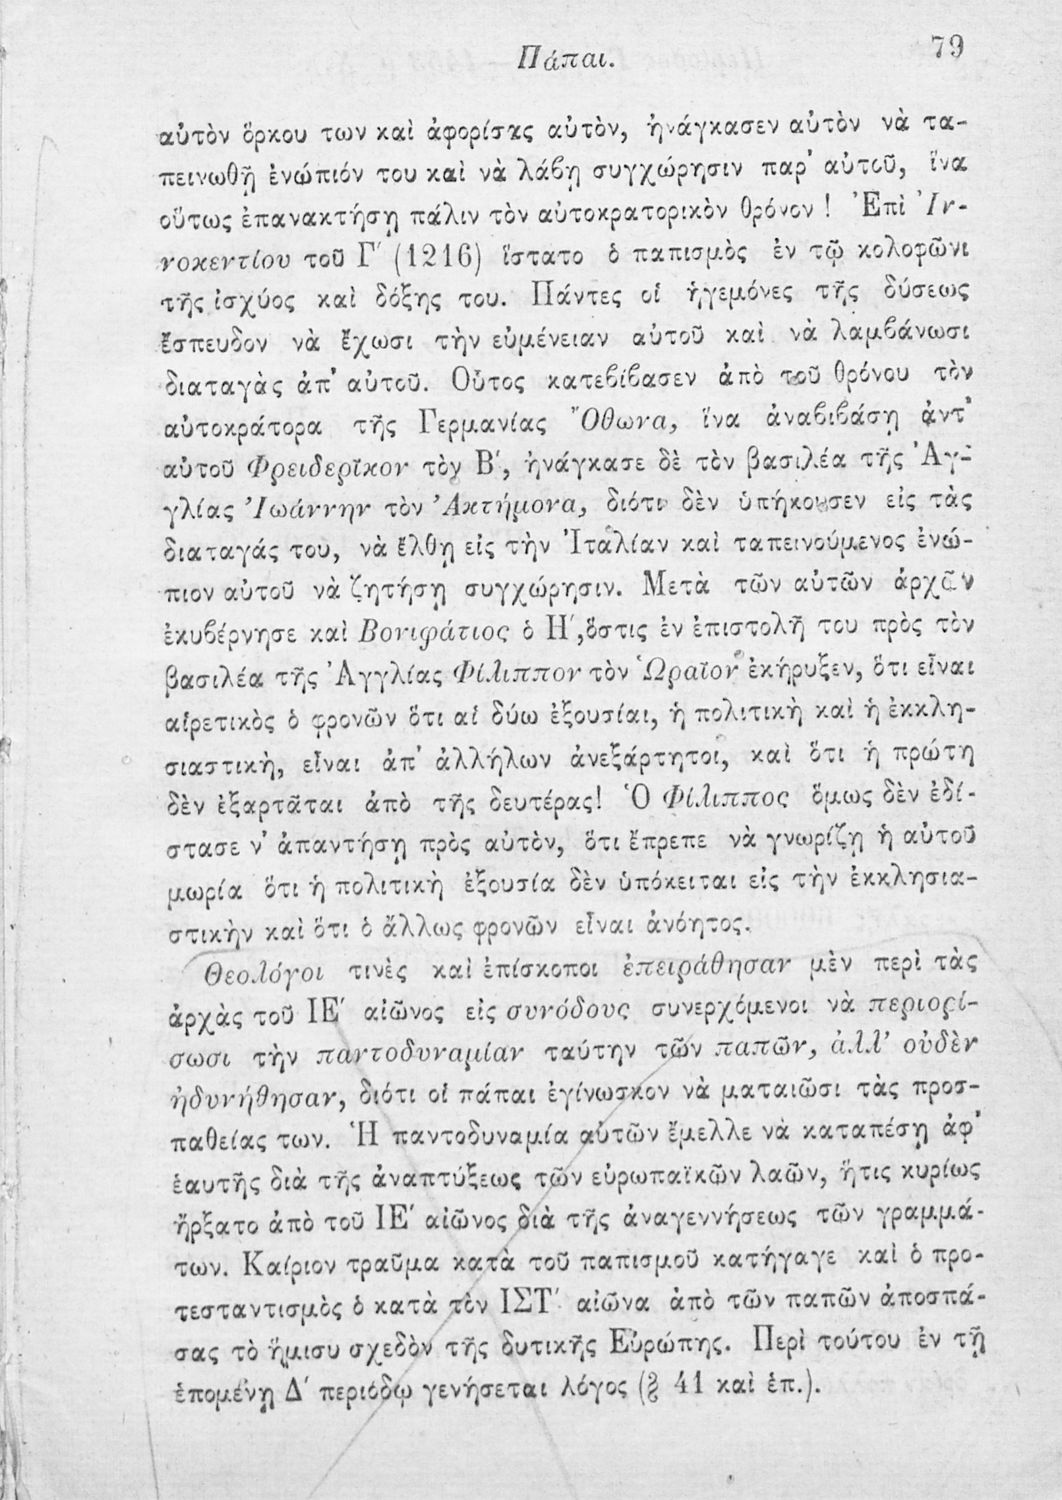 Πάπαι.
79
αὐτὸν ὅρκου των καὶ ἀφορίσας αὐτὸν, ἠνάγκασεν αὐτὸν νὰ τα-
πεινωθῇ ἐνώπιόν του καὶ νὰ λάβῃ συγχώρησιν παρ' αὐτοῦ, ἵνα
οὕτως ἐπανακτήσῃ πάλιν τὸν αὐτοκρατορικὸν θρόνον! Ἐπὶ Ἰν-
νοκεντίου τοῦ Γ' (1216) ἵστατο ὁ παπισμὸς ἐν τῷ κολοφῶνι
τῆς ἰσχύος καὶ δόξης του. Πάντες οἱ ἡγεμόνες τῆς δύσεως
ἔσπευδον νὰ ἔχωσι τὴν εὐμένειαν αὐτοῦ καὶ νὰ λαμβάνωσι
διαταγὰς ἀπ' αὐτοῦ. Οὗτος κατεβίβασεν ἀπὸ τοῦ θρόνου τὸν
αὐτοκράτορα τῆς Γερμανίας Ὄθωνα, ἵνα ἀναβιβάσῃ ἀντ'
αὐτοῦ Φρειδερῖκον τὸν Β', ἠνάγκασε δὲ τὸν βασιλέα τῆς Ἀγ-
γλίας Ἰωάννην τὸν Ἀκτήμονα, διότι δὲν ὑπήκουσεν εἰς τὰς
διαταγάς του, νὰ ἔλθῃ εἰς τὴν Ἰταλίαν καὶ ταπεινούμενος ἐνώ-
πιον αὐτοῦ νὰ ζητήσῃ συγχώρησιν. Μετὰ τῶν αὐτῶν ἀρχῶν
ἐκυβέρνησε καὶ Βονιφάτιος ὁ Η', ὅστις ἐν ἐπιστολῇ του πρὸς τὸν
βασιλέα τῆς Ἀγγλίας Φίλιππον τὸν Ὡραῖον ἐκήρυξεν, ὅτι εἶναι
αἱρετικὸς ὁ φρονῶν ὅτι αἱ δύω ἐξουσίαι, ἡ πολιτικὴ καὶ ἡ ἐκκλη-
σιαστικὴ, εἶναι ἀπ' ἀλλήλων ἀνεξάρτητοι, καὶ ὅτι ἡ πρώτη
δὲν ἐξαρτᾶται ἀπὸ τῆς δευτέρας! Ὁ Φίλιππος ὅμως δὲν ἐδί-
στασε ν' ἀπαντήσῃ πρὸς αὐτὸν, ὅτι ἔπρεπε νὰ γνωρίζῃ ἡ αὐτοῦ
μωρία ὅτι ἡ πολιτικὴ ἐξουσία δὲν ὑπόκειται εἰς τὴν ἐκκλησια-
στικὴν καὶ ὅτι ὁ ἄλλως φρονῶν εἶναι ἀνόητος.
Θεολόγοι τινὲς καὶ ἐπίσκοποι ἐπειράθησαν μὲν περὶ τὰς
ἀρχὰς τοῦ ΙΕ' αἰῶνος εἰς συνόδους συνερχόμενοι νὰ περιορί-
σωσι τὴν παντοδυναμίαν ταύτην τῶν παπῶν, ἀλλ' οὐδὲν
ἠδυνήθησαν, διότι οἱ πάπαι ἐγίνωσκον νὰ ματαιῶσι τὰς προσ-
παθείας των. Ἡ παντοδυναμία αὐτῶν ἔμελλε νὰ καταπέσῃ ἀφ'
ἑαυτῆς διὰ τῆς ἀναπτύξεως τῶν εὐρωπαϊκῶν λαῶν, ἥτις κυρίως
ἤρξατο ἀπὸ τοῦ ΙΕ' αἰῶνος διὰ τῆς ἀναγεννήσεως τῶν γραμμά-
των. Καίριον τραῦμα κατὰ τοῦ παπισμοῦ κατήγαγε καὶ ὁ προ-
τεσταντισμὸς ὁ κατὰ τὸν ΙΣΤ' αἰῶνα ἀπὸ τῶν παπῶν ἀποσπά-
σας τὸ ἥμισυ σχεδὸν τῆς δυτικῆς Εὐρώπης. Περὶ τούτου ἐν τῇ
ἑπομένῃ Δ' περιόδῳ γενήσεται λόγος (§ 41 καὶ ἑπ.).